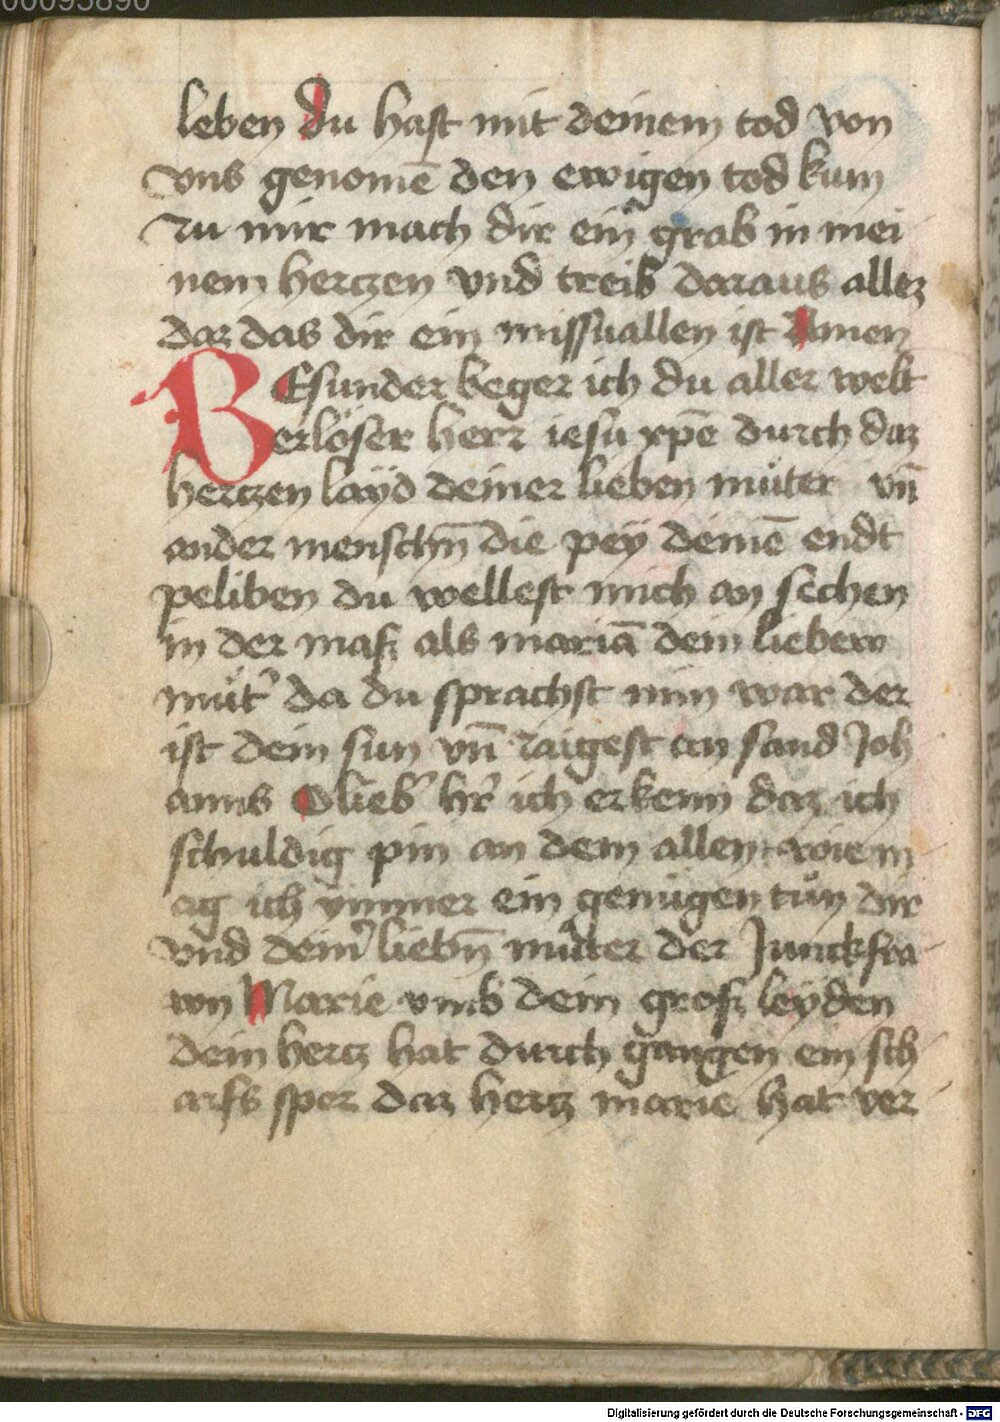 00095890
leben du hast mit deinem tod von
vns genomē den ewigen tod kum
zu mir mach dir ein grab in mei
nem hertzen vnd treib daraus allez
daz das dir ein missuallen ist Amen
BEsunder beger ich du aller welt
erlöser herr iesu xp̄e durch daz
hertzen layd deiner lieben muter vn̄
ander menschn̄ die pey deinē endt
peliben du wellest mich an sechen
in der maß als mariā dein liebew
mut᷑ da du sprachst nim war der
ist dein sun vn̄ zaigest an sand Joh
anns O lieb᷑ hr᷑ ich erkenn daz ich
schuldig pin an dem allen wie m
ag ich ymmer ein genügen tun dir
vnd dein᷑ liebn̄ muter der Junckfra
wn Marie vmb dein groß leyden
dein hertz hat durch gangen ein sch
arfs sper daz hertz marie hat ver
Digitalisierung gefördert durch die Deutsche Forschungsgemeinschaft - DFG